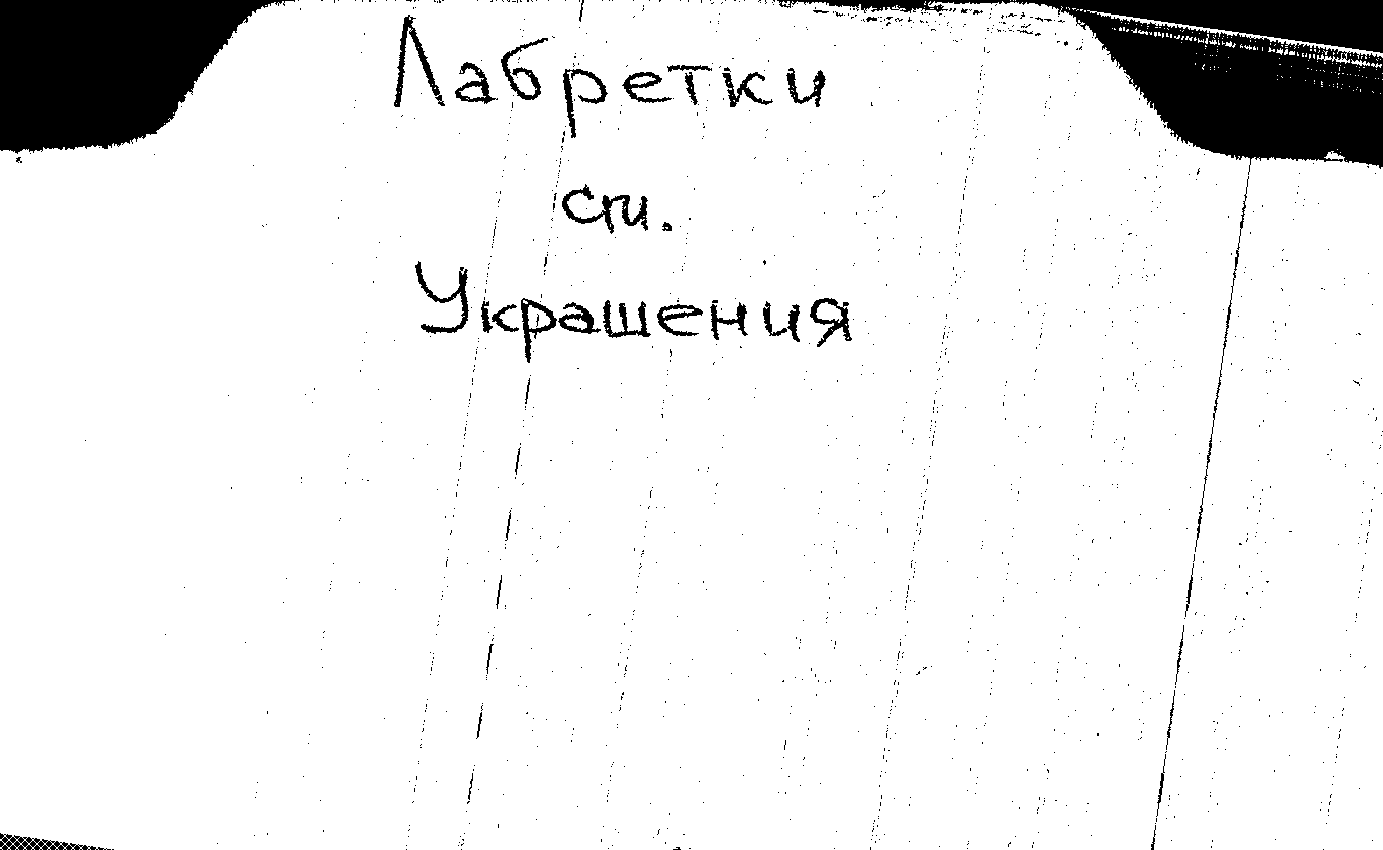 Лабретки
см.
Украшения